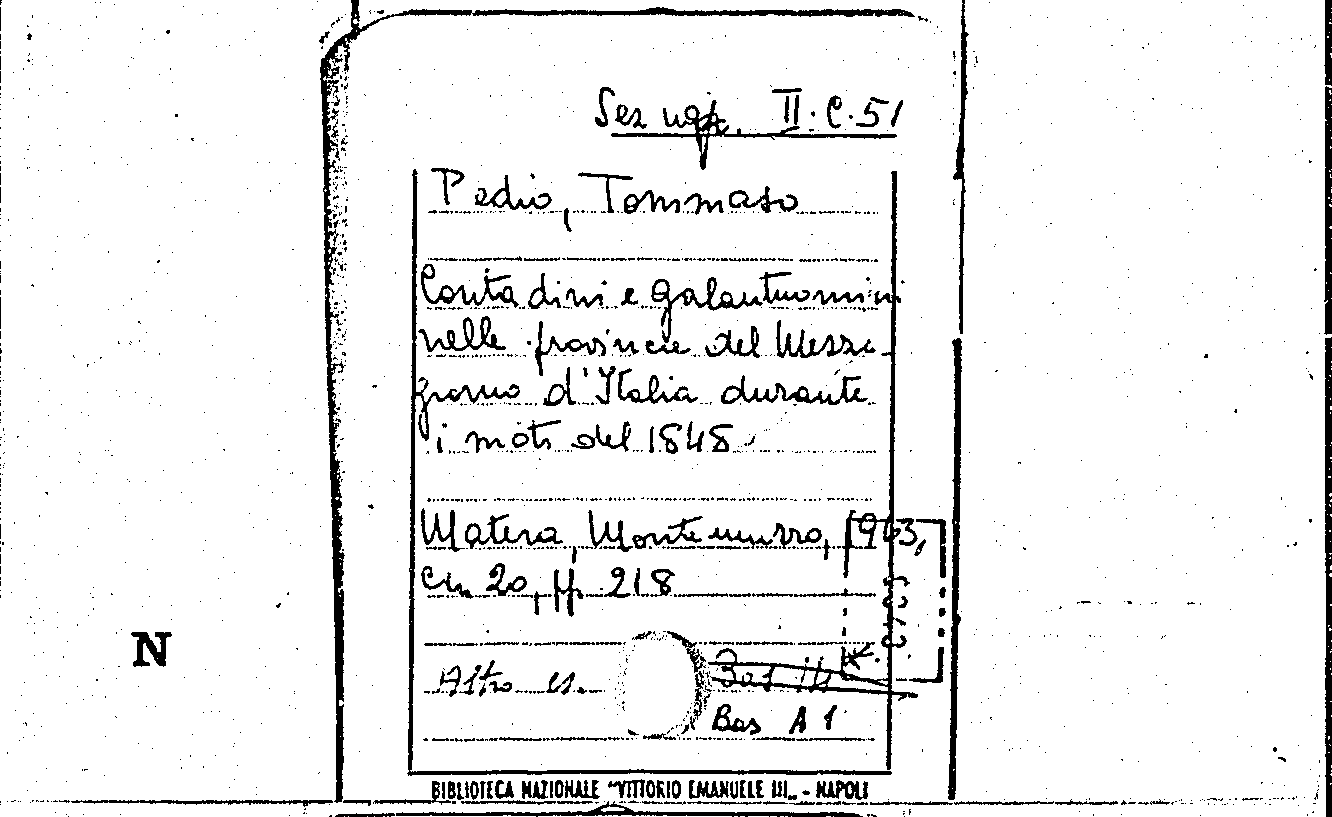 Sez nap. II.C.51
Pedio, Tommaso
Contadini e galantuomini
nelle provincie del Mezzo-
giorno d'Italia durante
i moti del 1848
Matera, Montemurro, 1963,
cm 20, pp. 218
N
Altro es.
Bas A 1
BIBLIOTECA NAZIONALE "VITTORIO EMANUELE III„ - NAPOLI